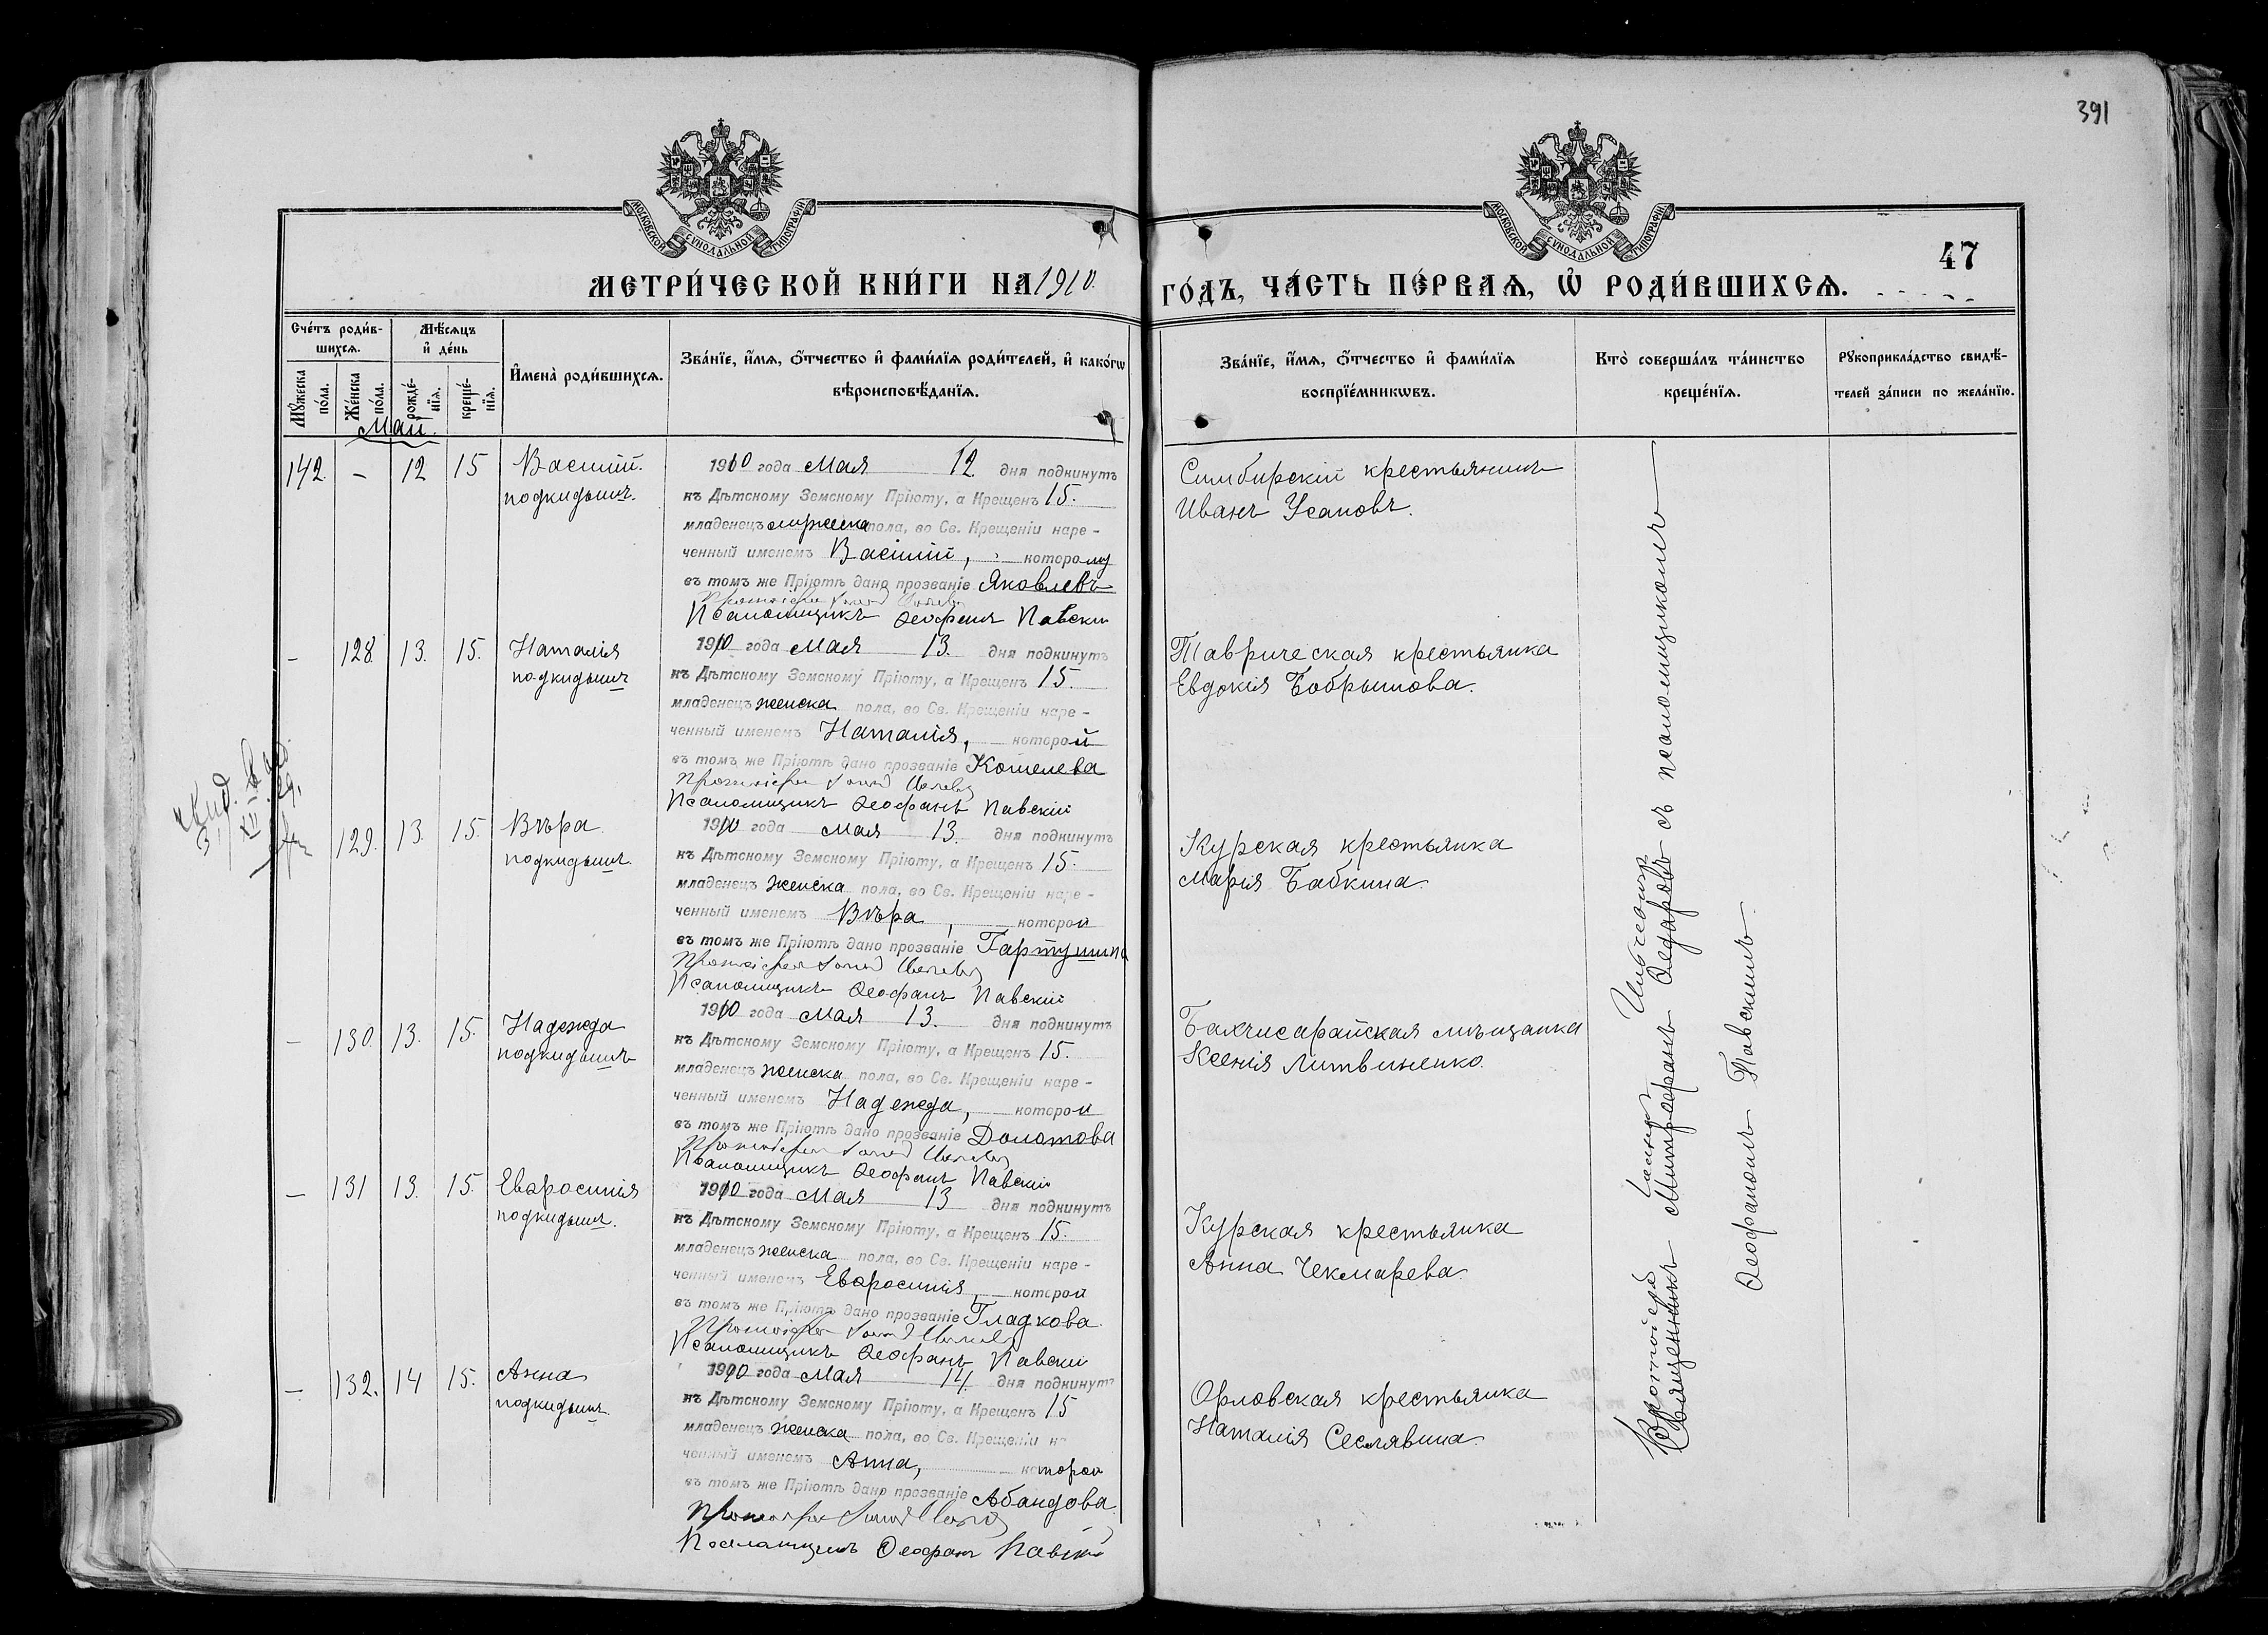 391
МОСКОВСКОЙ СѴНОДАЛЬНОЙ ТИПОГРАФІИ
МОСКОВСКОЙ СѴНОДАЛЬНОЙ ТИПОГРАФІИ
47
МЕТРИ́ЧЕСКОЙ КНИ́ГИ НА 1910.
ГО́ДЪ, ЧА́СТЬ ПЕ́РВАѦ, Ѡ҆ РОДИ́ВШИХСѦ.
Сче́тъ роди́в-
шихсѧ.
Мꙋ́жеска по́ла.
Же́нска по́ла.
Мѣ́сѧцъ
и҆ де́нь
рожде́-нїѧ.
креще́-нїѧ.
И҆мена̀ роди́вшихсѧ.
Зва́нїе, и҆́мѧ, ѻ҆́тчество и҆ фами́лїѧ роди́телей, и҆ како́гѡ
вѣроисповѣ́данїѧ.
Зва́нїе, и҆́мѧ, ѻ҆́тчество и҆ фами́лїѧ
воспрїе́мникѡвъ.
Кто̀ соверша́лъ та́инство
креще́нїѧ.
Рꙋкоприкла́дство свидѣ́-
телей за́писи по жела́нїю.
Май.
142. – 12 15 Василій.
подкидышъ.
1910 года Мая 12 дня подкинутъ
къ Дѣтскому Земскому Пріюту, а Крещенъ 15.
младенецъ мужеска пола, во Св. Крещеніи наре-
ченный именемъ Василій, которому
въ томъ же Пріютѣ дано прозваніе Яковлевъ
Протоіерей
Псаломщикъ Ѳеофанъ Павскій
Симбирскій крестьянинъ
Иванъ Усановъ.
– 128. 13. 15. Наталія
подкидышъ
1910 года Мая 13. дня подкинутъ
къ Дѣтскому Земскому Пріюту, а Крещенъ 15.
младенецъ женска пола, во Св. Крещеніи наре-
ченный именемъ Наталія, которой
въ томъ же Пріютѣ дано прозваніе Кошелева
Протоіерей
Псаломщикъ Ѳеофанъ Павскій
Таврическая крестьянка
Евдокія Бобрышова.
129. 13. 15. Вѣра
подкидышъ.
1910 года Мая 13. дня подкинутъ
къ Дѣтскому Земскому Пріюту, а Крещенъ 15.
младенецъ женска пола, во Св. Крещеніи наре-
ченный именемъ Вѣра, которой
въ томъ же Пріютѣ дано прозваніе
Протоіерей
Псаломщикъ Ѳеофанъ Павскій
Курская крестьянка
Марія Бабкина.
– 130. 13. 15. Надежда
подкидышъ
1910 года Мая 13. дня подкинутъ
къ Дѣтскому Земскому Пріюту, а Крещенъ 15.
младенецъ женска пола, во Св. Крещеніи наре-
ченный именемъ Надежда, которой
въ томъ же Пріютѣ дано прозваніе Долотова
Протоіерей
Псаломщикъ Ѳеофанъ Павскій
Бахчисарайская мѣщанка
Ксенія Литвиненко.
– 131 13. 15. Евфросинія
подкидышъ.
1910 года Мая 13 дня подкинутъ
къ Дѣтскому Земскому Пріюту, а Крещенъ 15.
младенецъ женска пола, во Св. Крещеніи наре-
ченный именемъ Евфросинія, которой
въ томъ же Пріютѣ дано прозваніе Гладкова.
Протоіерей
Псаломщикъ Ѳеофанъ Павскій
Курская крестьянка
Анна Чекмарева.
– 132. 14 15. Анна
подкидышъ.
1910 года Мая 14 дня подкинутъ
къ Дѣтскому Земскому Пріюту, а Крещенъ 15
младенецъ женска пола, во Св. Крещеніи
ченный именемъ Анна, которой
въ томъ же Пріютѣ дано прозваніе Абандова.
Протоіерей
Псаломщикъ Ѳеофанъ Павскій
Орловская крестьянка
Наталія Сеславина.
Протоіерей
Священникъ Митрофанъ Ѳедоровъ съ псаломщикомъ
Ѳеофаномъ Павскимъ.